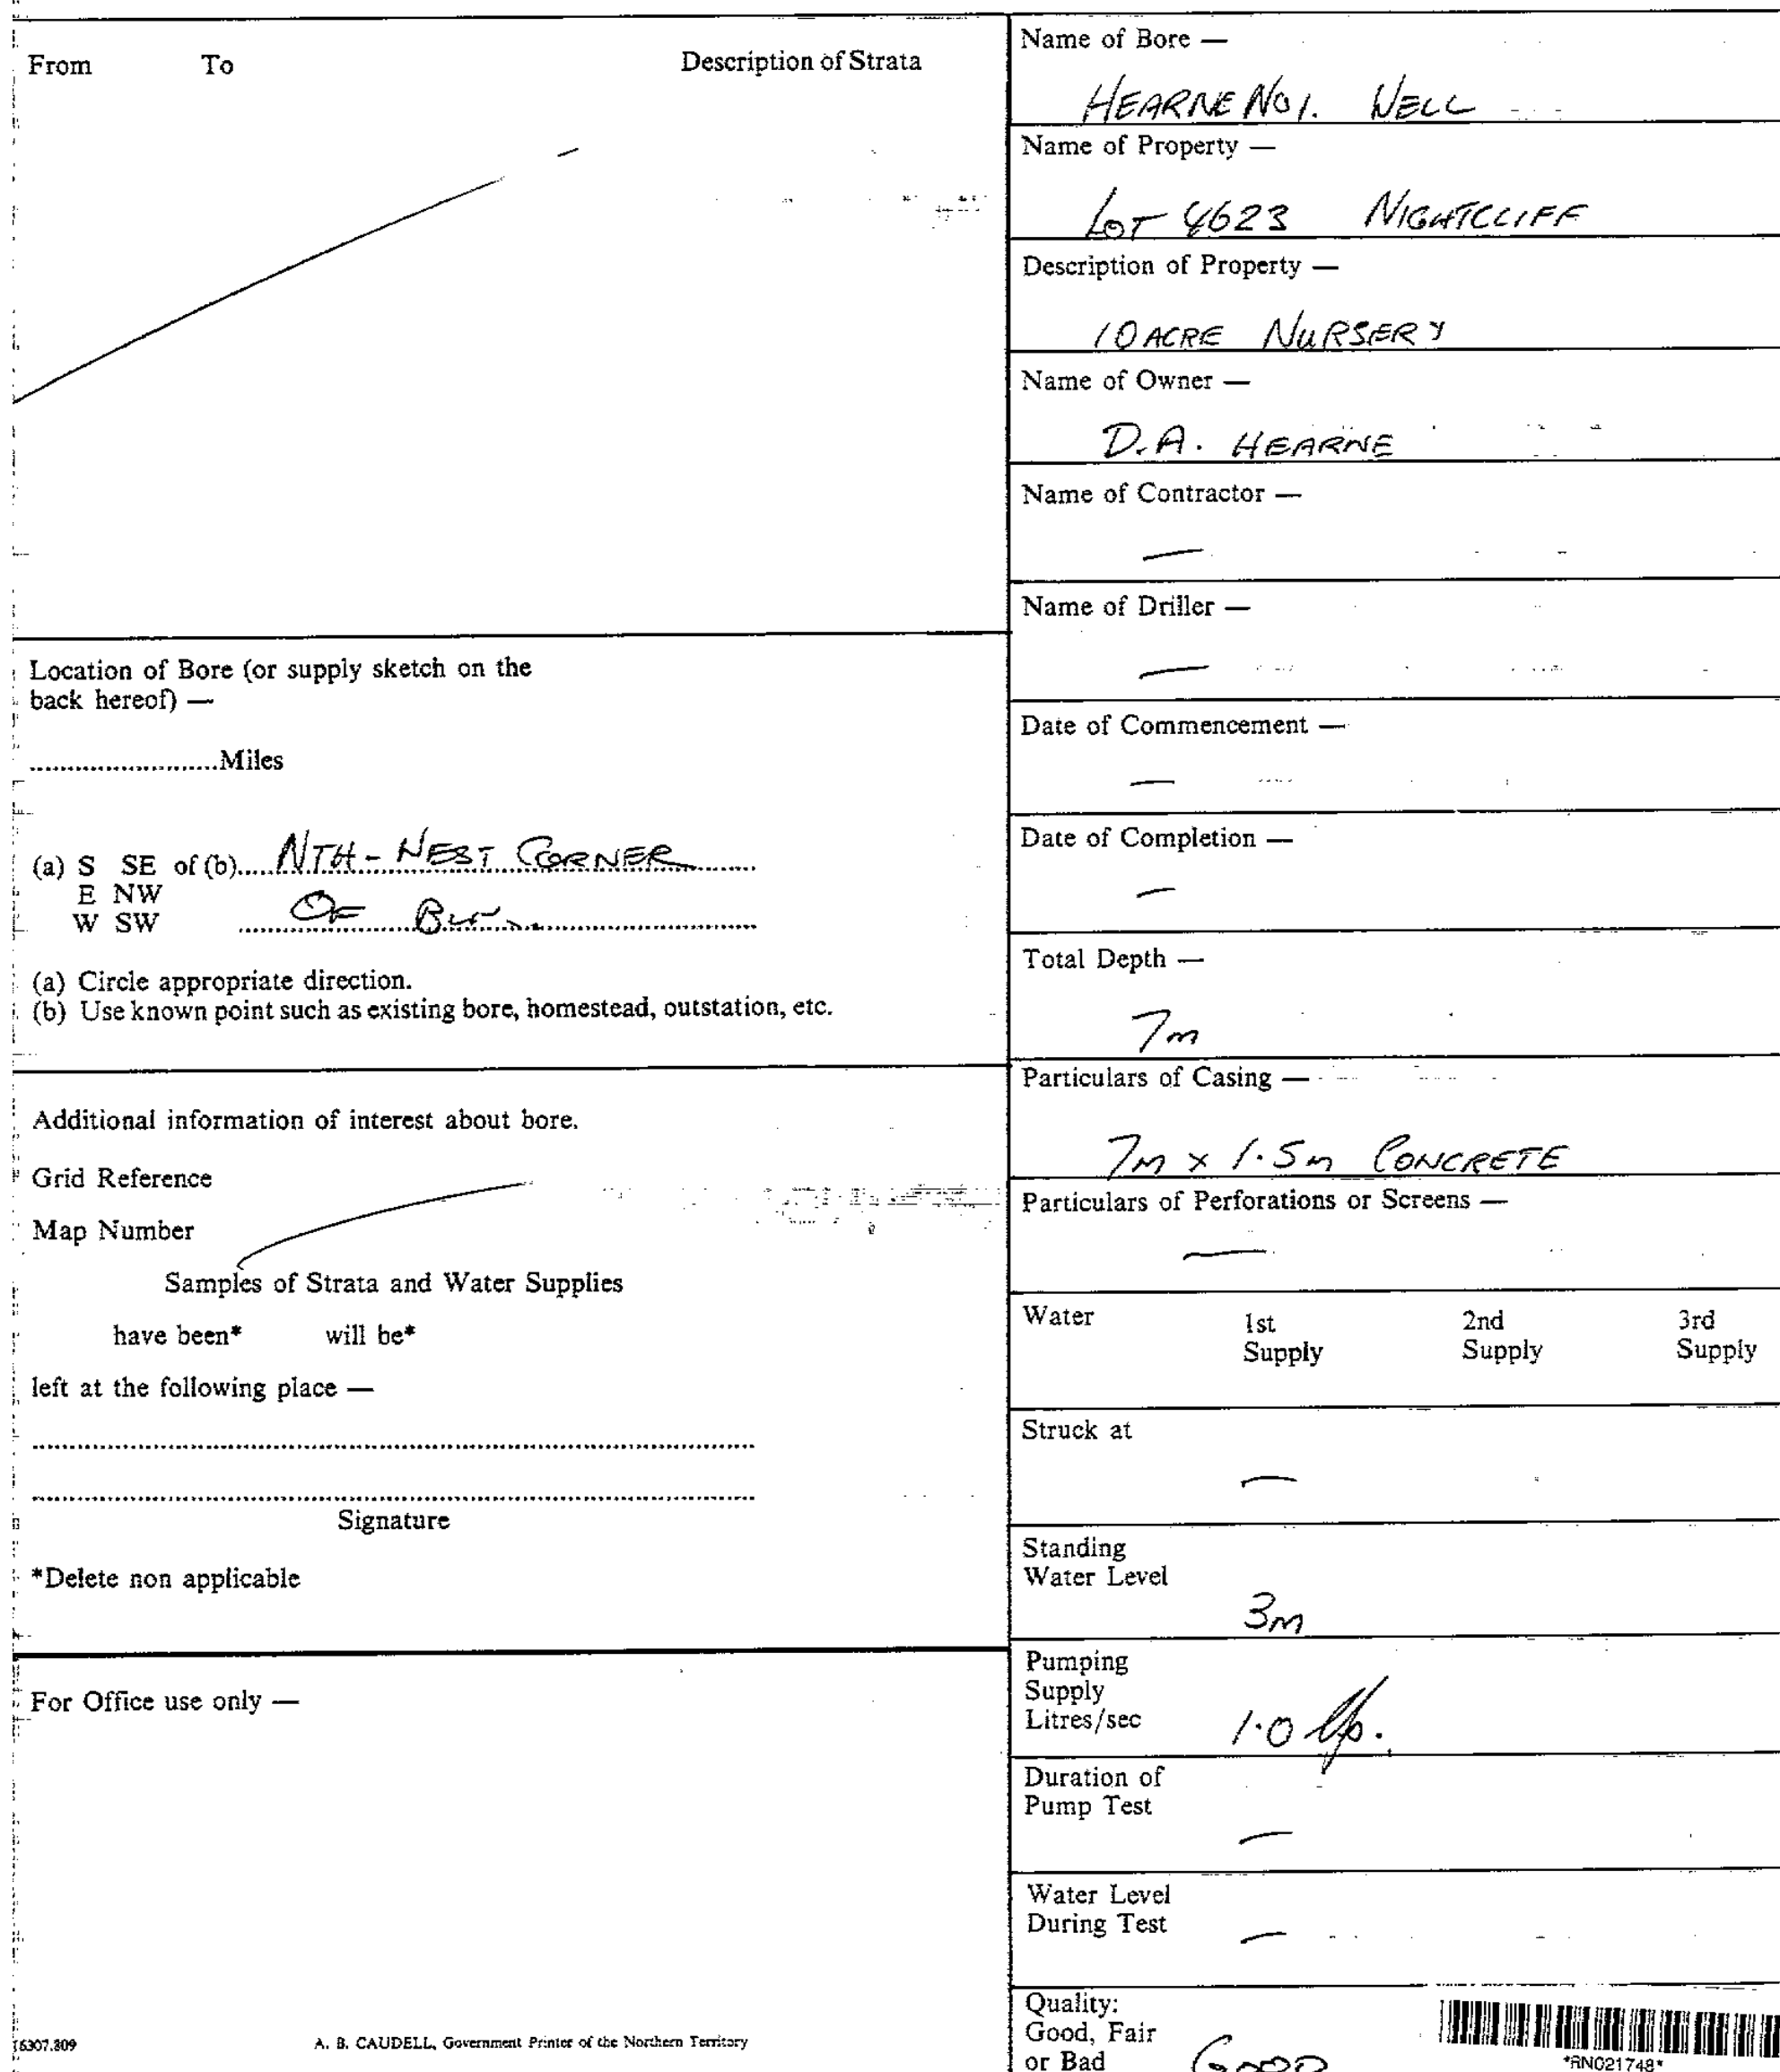 From To Description of Strata
Location of Bore (or supply sketch on the
back hereof) —
........................Miles
(a) S SE of (b)..... NTH - WEST CORNER
E NW
W SW OF
(a) Circle appropriate direction.
(b) Use known point such as existing bore, homestead, outstation, etc.
Additional information of interest about bore.
Grid Reference
Map Number
Samples of Strata and Water Supplies
have been* will be*
left at the following place —
Signature
*Delete non applicable
For Office use only —
A. B. CAUDELL, Government Printer of the Northern Territory
Name of Bore —
HEARNE NO 1. WELL
Name of Property —
LOT 4623 NIGHTCLIFF
Description of Property —
10 ACRE NURSERY
Name of Owner —
D.A. HEARNE
Name of Contractor —
—
Name of Driller —
—
Date of Commencement —
—
Date of Completion —
—
Total Depth —
7m
Particulars of Casing —
7m × 1.5m CONCRETE
Particulars of Perforations or Screens —
—
Water 1st 2nd 3rd
Supply Supply Supply
Struck at
—
Standing
Water Level
3m
Pumping
Supply
Litres/sec 1.0 l/s.
Duration of
Pump Test
—
Water Level
During Test
—
Quality:
Good, Fair
or Bad GOOD
*RN021748*